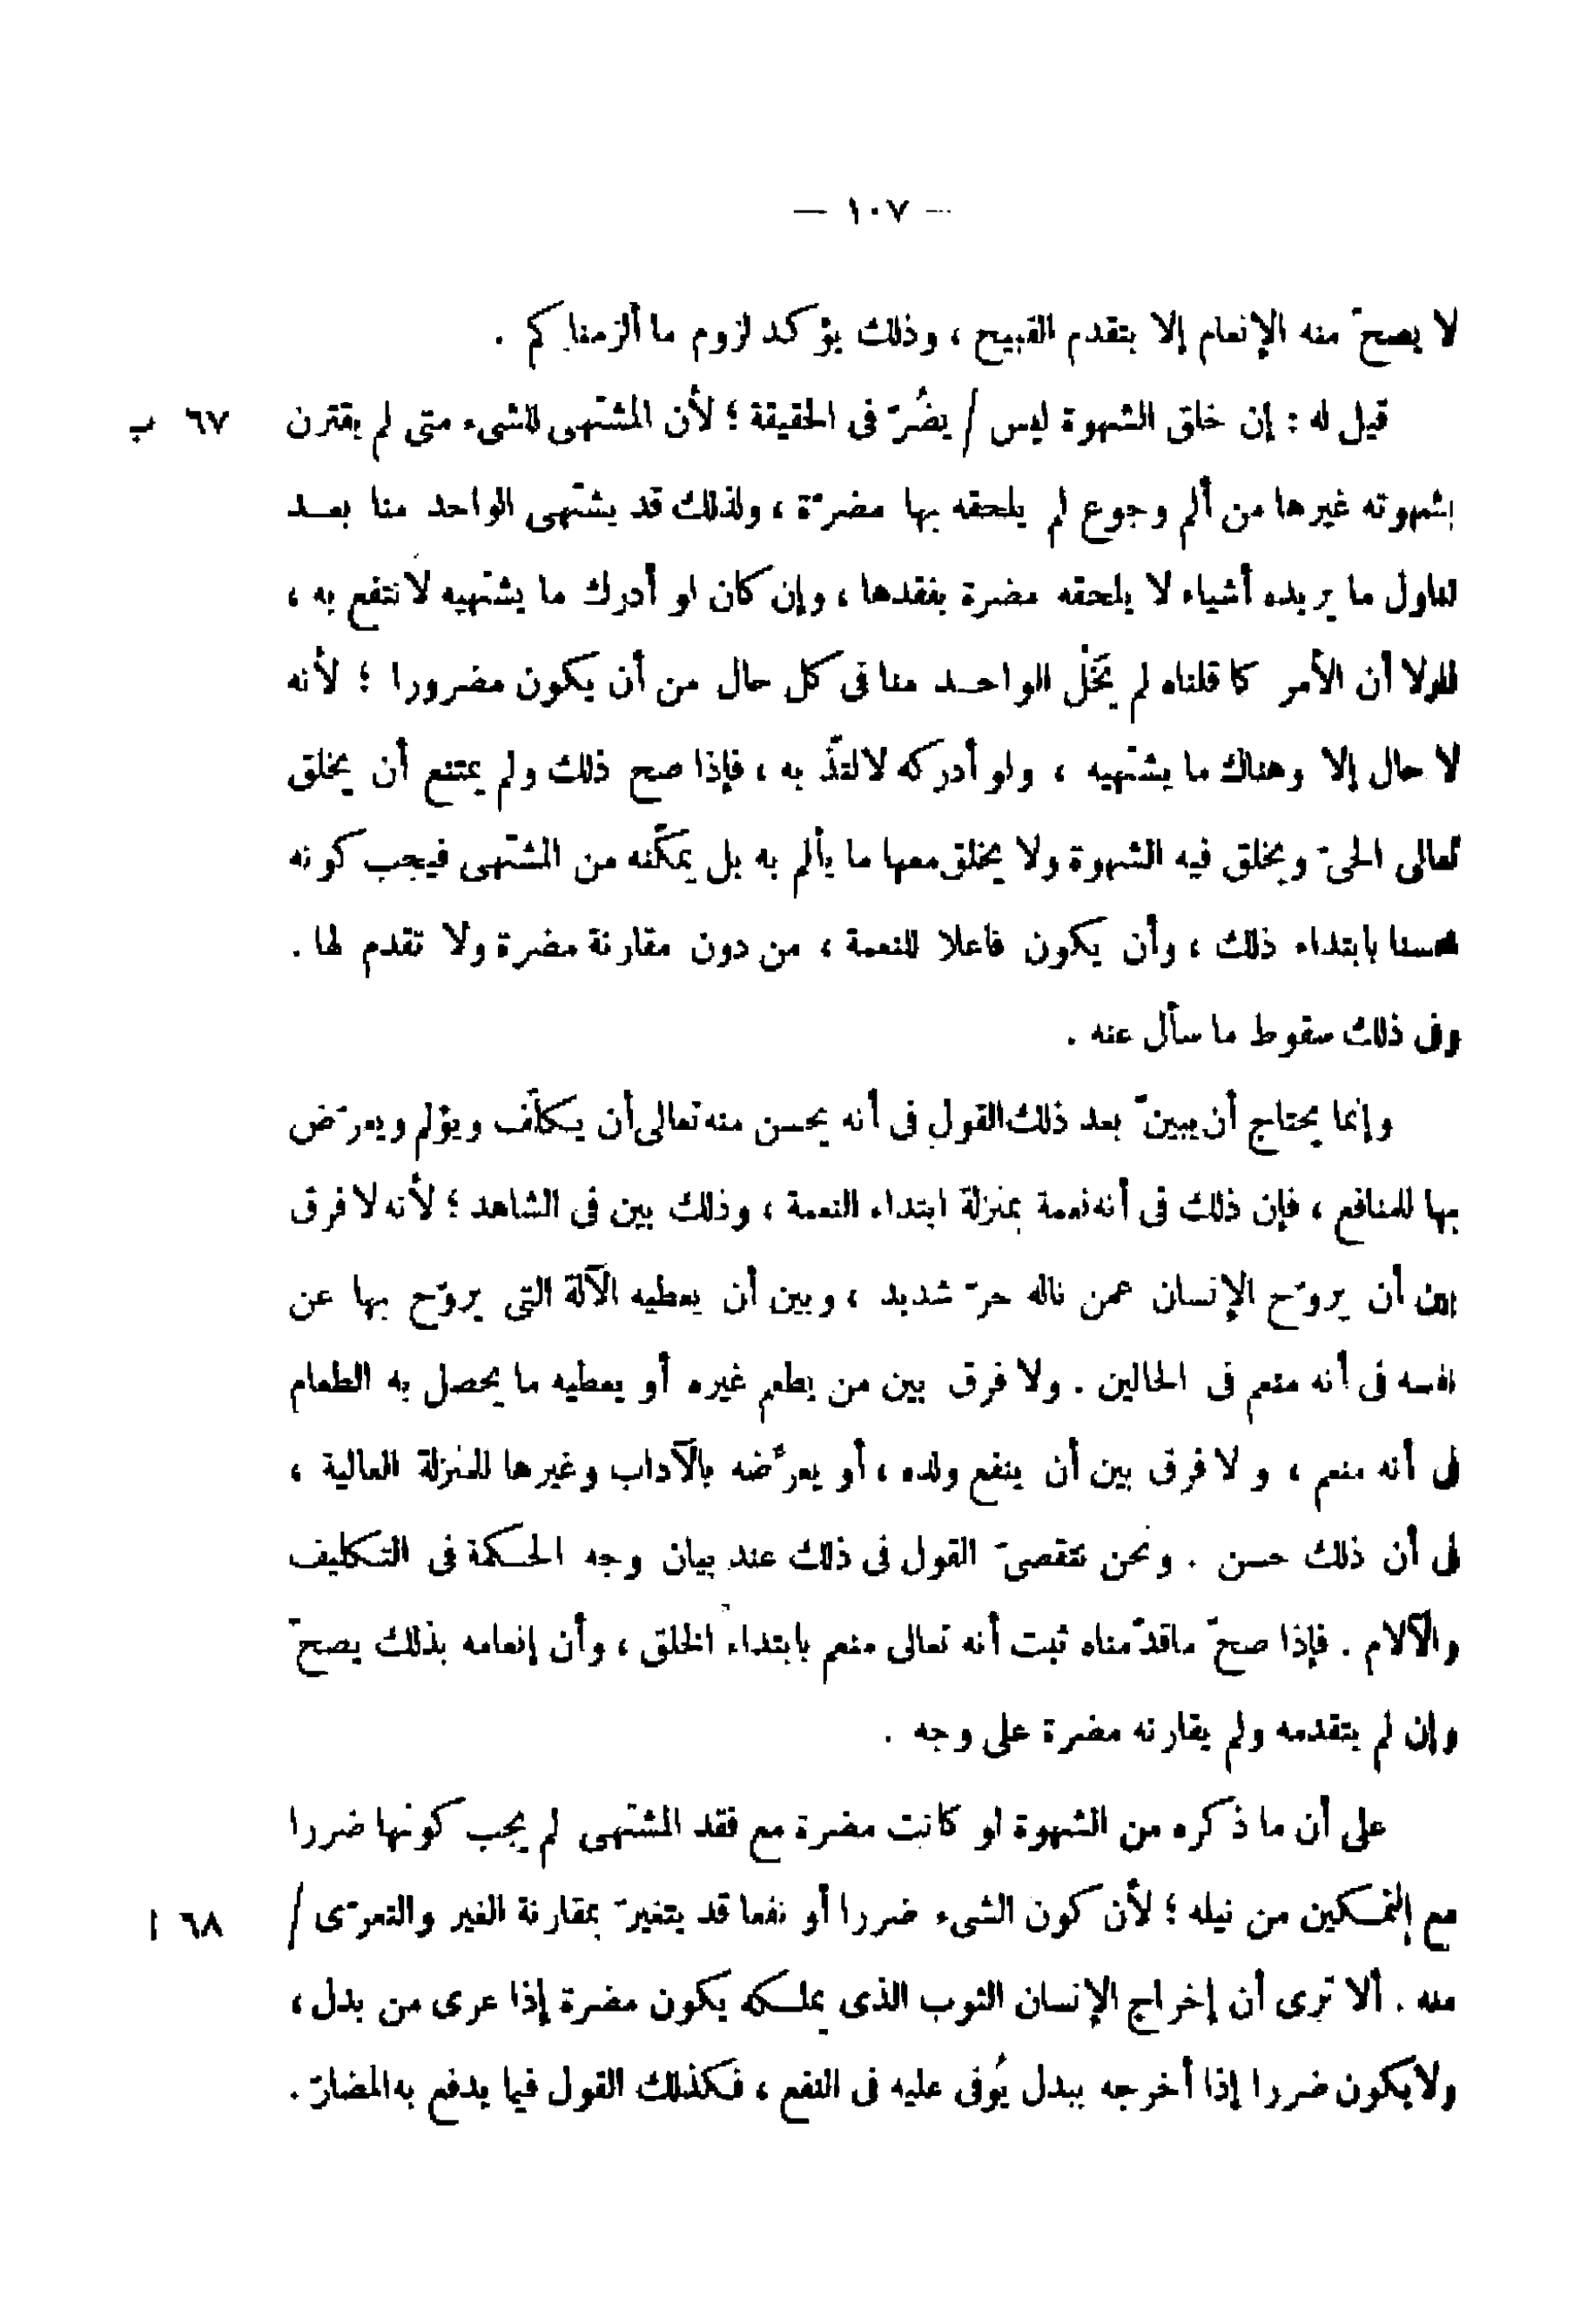 — ١٠٧ —
لا يصحّ منه الإنعام إلا بتقدم القبيح ، وذلك يؤكد لزوم ما ألزمناكم .
قيل له : إن خلق الشهوة ليس / يضُرّ فى الحقيقة ؛ لأن المشتهى للشىء متى لم يقترن ٦٧ ب
بشهوته غيرها من ألم وجوع لم يلحقه بها مضرّة ، ولذلك قد يشتهى الواحد منا بعد
تناول ما يريده أشياء لا يلحقه مضرة بفقدها ، وإن كان لو أدرك ما يشتهيه لانتفع به ،
فلولا أن الأمر كما قلناه لم يَخْل الواحد منا فى كل حال من أن يكون مضرورا ؛ لأنه
لا حال إلا وهناك ما يشتهيه ، ولو أدركه لالتذّ به ، فإذا صح ذلك ولم يمتنع أن يخلق
تعالى الحىّ ويخلق فيه الشهوة ولا يخلق معها ما يألم به بل يمكّنه من المشتهى فيجب كونه
محسنا بابتداء ذلك ، وأن يكون فاعلا للنعمة ، من دون مقارنة مضرة ولا تقدم لها .
وفى ذلك سقوط ما سأل عنه .
وإنما يحتاج أن يبينّ بعد ذلك القول فى أنه يحسن منه تعالى أن يكلّف ويؤلم ويعرّض
بها للمنافع ، فإن ذلك فى أنه نعمة بمنزلة ابتداء النعمة ، وذلك بين فى الشاهد ؛ لأنه لا فرق
بين أن يروّح الإنسان عمن ناله حرّ شديد ، وبين أن يعطيه الآلة التى يروّح بها عن
نفسه فى أنه منعم فى الحالين . ولا فرق بين من يطعم غيره أو يعطيه ما يحصل به الطعام
فى أنه منعم ، و لا فرق بين أن ينفع ولده ، أو يعرّضه بالآداب وغيرها للمنزلة العالية ،
فى أن ذلك حسن . ونحن نتقصىّ القول فى ذلك عند بيان وجه الحكمة فى التكليف
والآلام . فإذا صحّ ماقدّمناه ثبت أنه تعالى منعم بابتداء الخلق ، وأن إنعامه بذلك يصحّ
وإن لم يتقدمه ولم يقارنه مضرة على وجه .
على أن ما ذكره من الشهوة لو كانت مضرة مع فقد المشتهى لم يجب كونها ضررا
مع التمكين من نيله ؛ لأن كون الشىء ضررا أو نفعا قد يتغيرّ بمقارنة الغير والتعرّى / ٦٨ ا
منه . ألا ترى أن إخراج الإنسان الثوب الذى يملكه يكون مضرة إذا عرى من بدل ،
ولايكون ضررا إذا أخرجه ببدل يُوفى عليه فى النفع ، فكذلك القول فيما يدفع به المضارّ .